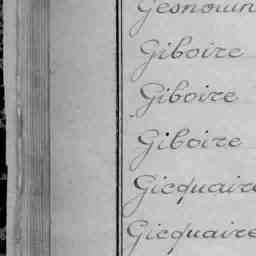 Gesnouin
Giboire
Giboire
Giboire
Gicquaire
Gicquaire